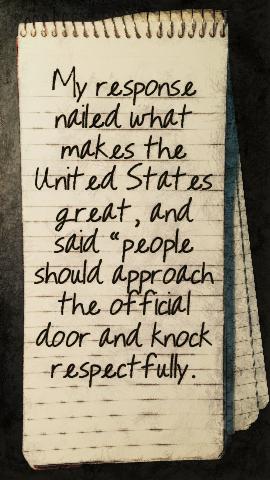 My response
nailed what
makes the
United States
great, and
said "people
should approach
the official
door and knock
respectfully.